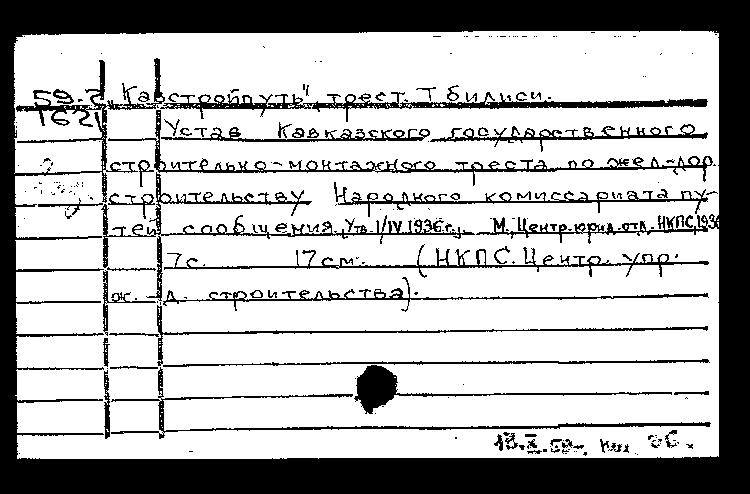 59-2 „Кавстройпуть", трест. Тбилиси.
1621 Устав Кавказского государственного
строительно-монтажного треста по жел.-дор.
строительству Народного комиссариата пу-
тей сообщения. Утв. 1/IV 1936 г. М., Центр. юрид. отд. НКПС, 1936
7 с. 17 см. (НКПС. Центр. упр.
ж.-д. строительства).